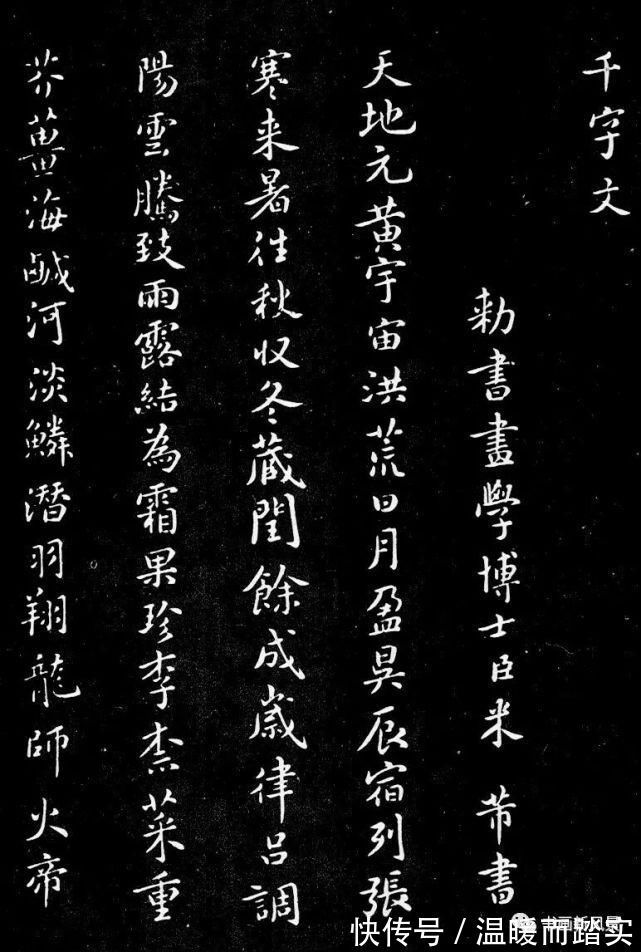 千字文
勑書畫學博士臣米 芾書
天地元黄宇宙洪荒日月盈昃辰宿列張
寒来暑往秋収冬蔵閏餘成歳律吕調
陽雲騰致雨露結為霜果珍李柰菜重
芥薑海鹹河淡鱗潛羽翔龍師火帝
书画新风景
快传号 / 温暖而踏实